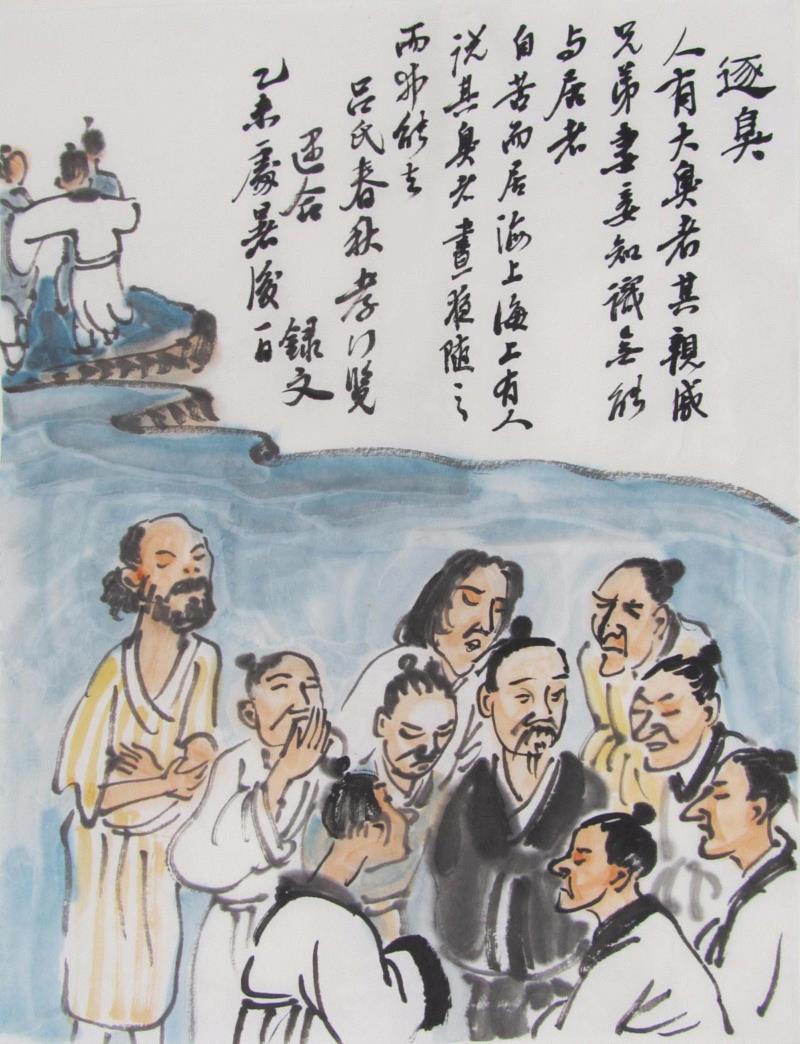 逐臭
人有大臭者其親戚
兄弟妻妾知識无能
与居者
自苦而居海上海上有人
说其臭者晝夜随之
而弗能去
吕氏春秋孝行览
遇合 録文
乙未處暑後一日